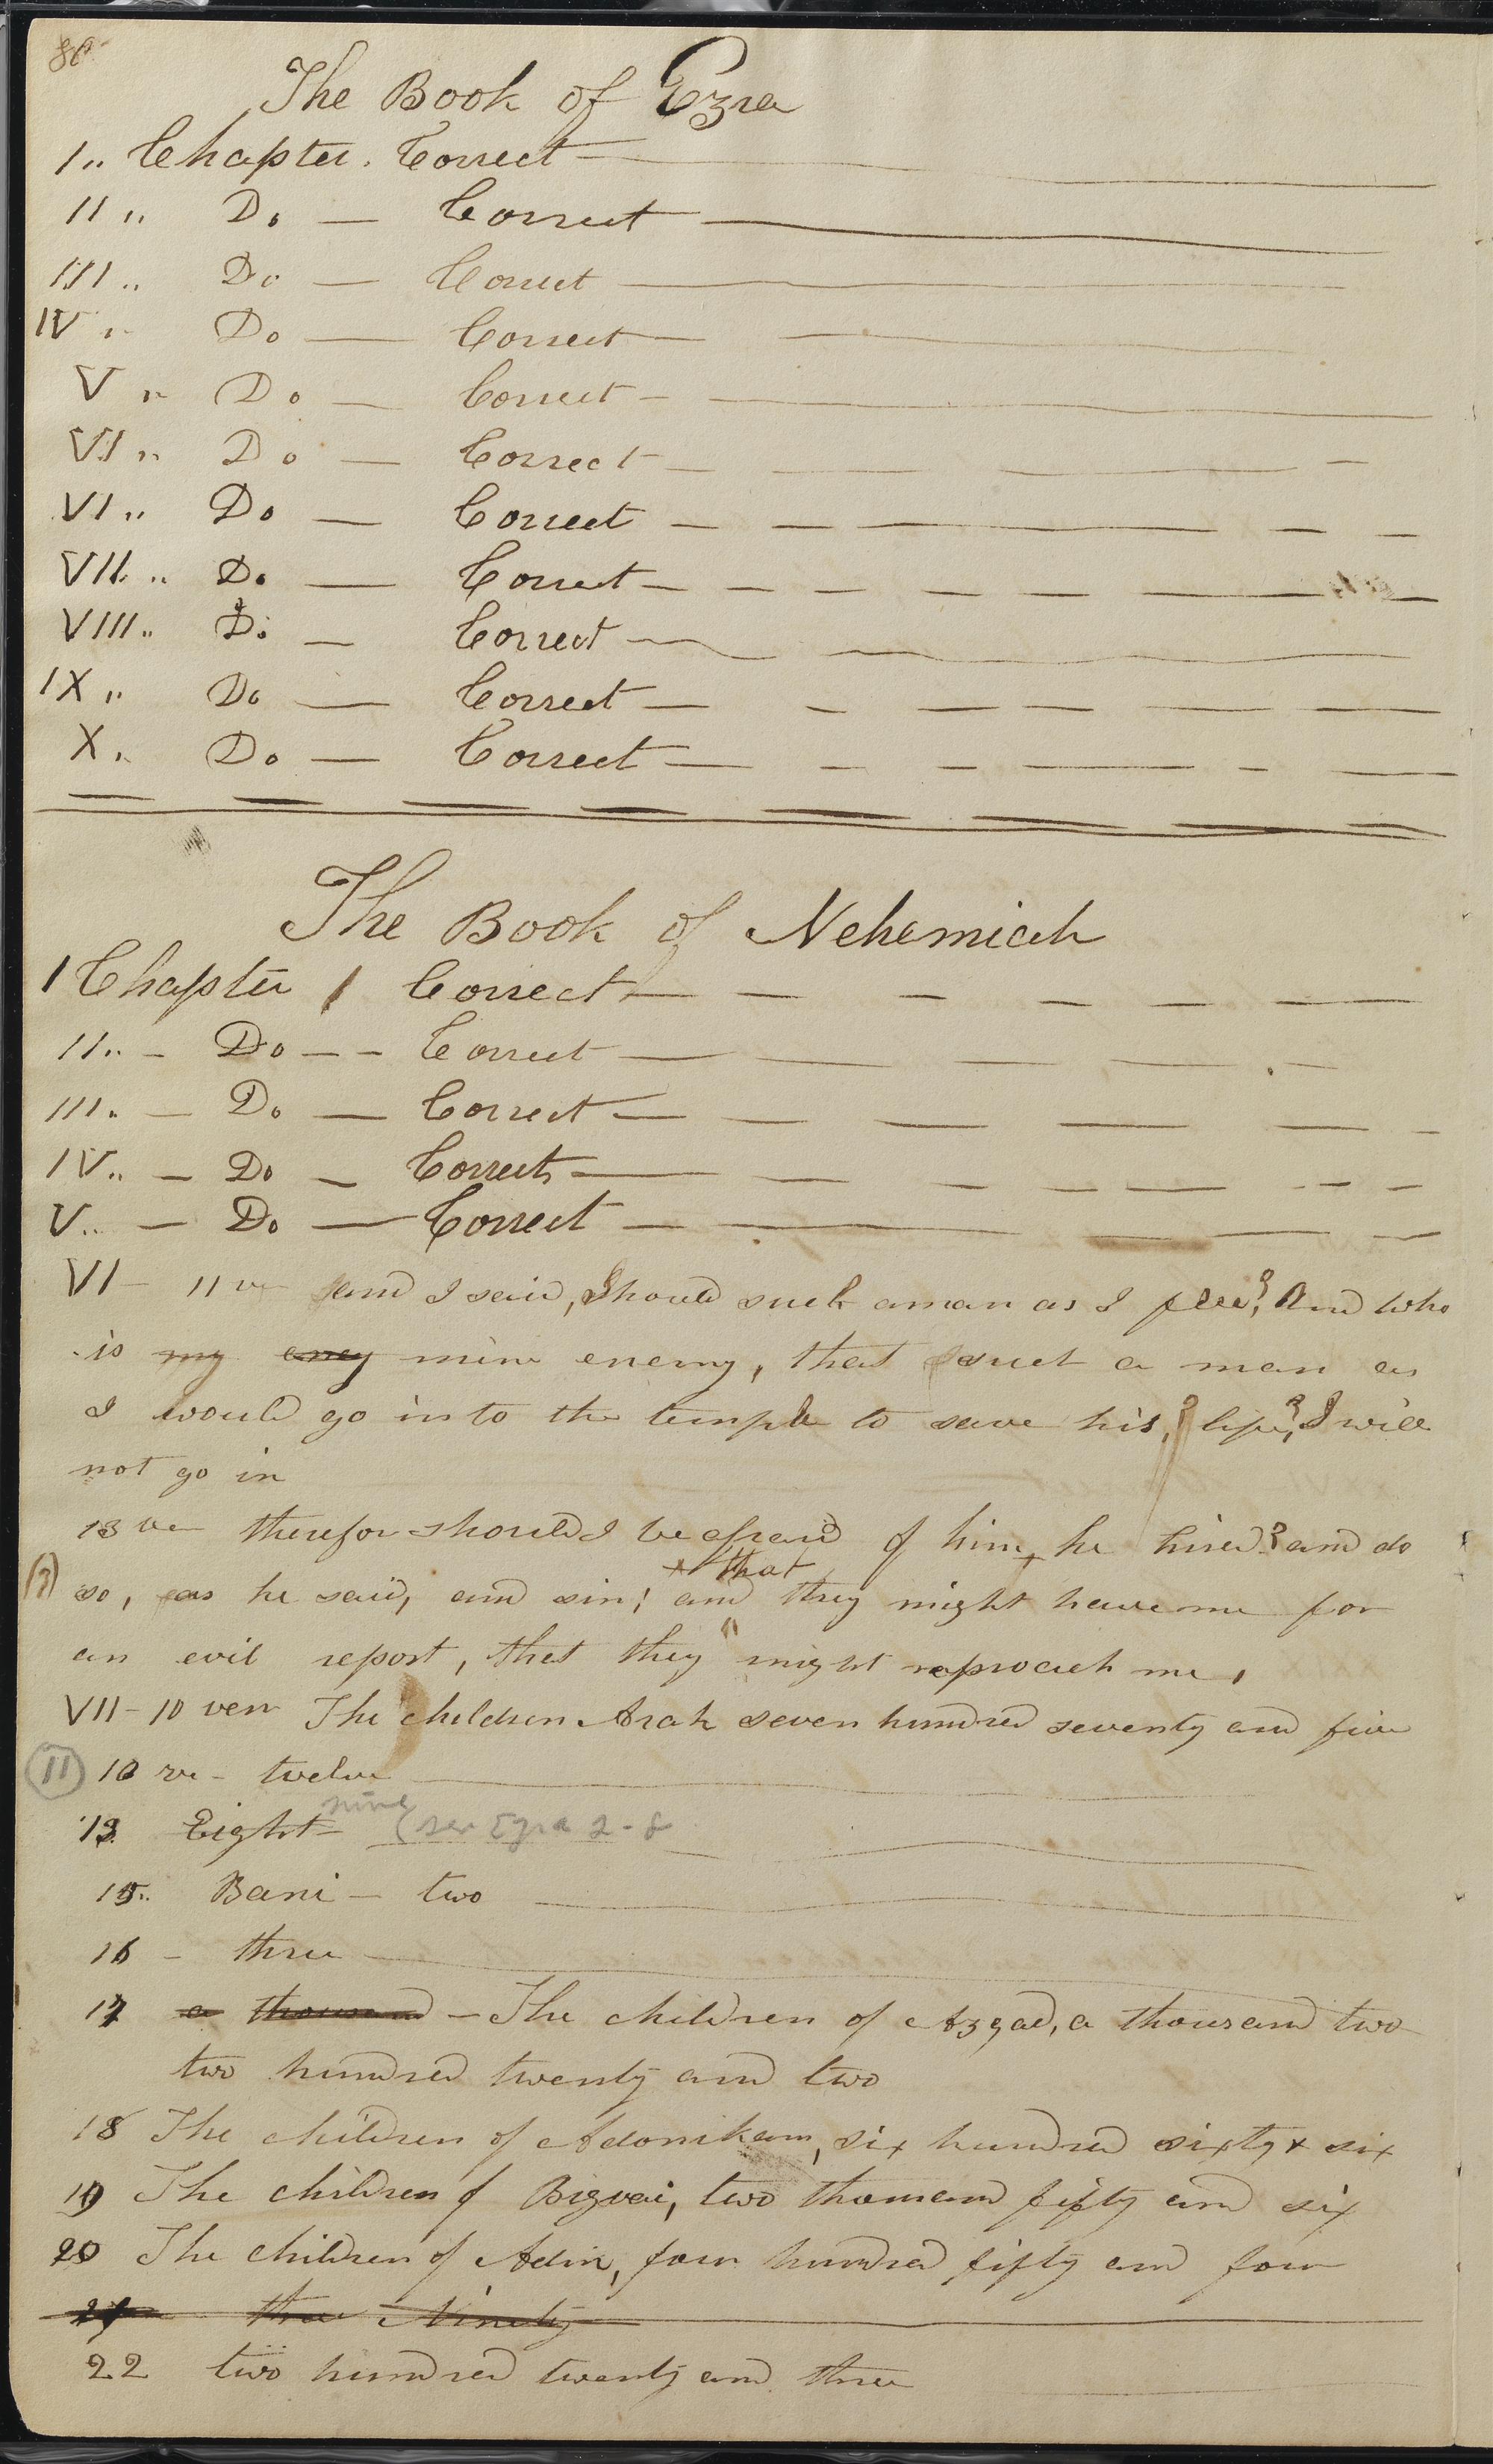 80
The Book of Ezra
1" Chapter. Correct
II" Do — Correct
III" Do — Correct
IV" Do — Correct
V" Do — Correct
VI" Do — Correct
VI" Do — Correct
VII" Do — Correct
VIII" Do — Correct
IX" Do — Correct
X" Do — Correct
The Book of Nehemiah
1 Chapter 1 Correct
II" — Do — — Correct
III" — Do — Correct
IV" — Do — Correct
V" — Do — Correct
VI — 11 ve and I said, Should such a man as I flee? And who
is my eney mine enemy, that such a man as
I would go into the temple to save his life? I will
not go in
13 ve therefor should I be afraid of him he hired? and do
that
so, as he said, and sin; and they might have me for
an evil report, that they might reproach me,
VII — 10 vers The children Arah seven hundred seventy and five
(11) 10 ve — twelve
nine
13 Eight — (see Ezra 2-8
15" Bani — two
16 — three
17 a thousand — The children of Azgad, a thousand two
two hundred twenty and two
18 The children of Adonikam, six hundred sixty & six
19 The children of Bigvai, two thousand fifty and six
20 The children of Adin, four hundred fifty and four
21 three Ninety
22 two hundred twenty and three